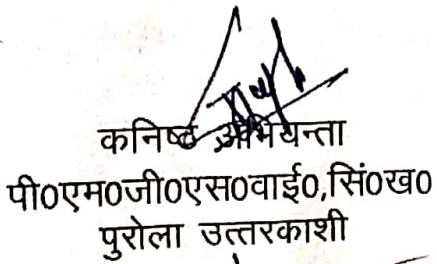 कनिष्ठ अभियन्ता
पी०एम०जी०एस०वाई०,सिं०ख०
पुरोला उत्तरकाशी